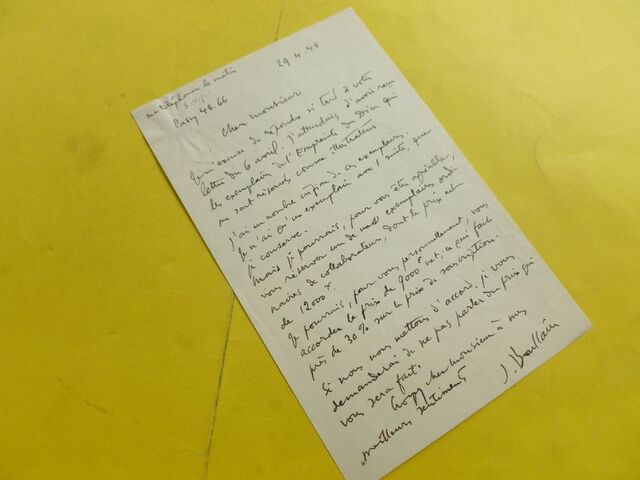 me téléphoner le matin
S.V.P.
48.66
29.4.48
Cher monsieur
Je m'excuse de répondre si tard à votre
lettre du 6 avril. J'attendais d'avoir reçu
les exemplaires de l'Empreinte du Dieu qui
me sont réservés comme illustrateur
J'ai un nombre infime de ces exemplaires.
Je n'ai qu'un exemplaire avec 1 suite, que
je conserve.
Mais je pourrais, pour vous être agréable,
vous réserver un de mes exemplaires ordi-
naires de collaborateur, dont le prix est
de 12000
Je pourrais, pour vous personnellement, vous
accorder le prix de 9000 net, ce qui fait
près de 30% sur le prix de souscription.
Si nous nous mettons d'accord, je vous
demanderai de ne pas parler du prix qui
vous sera fait.
Croyez cher monsieur à mes
meilleurs sentiments